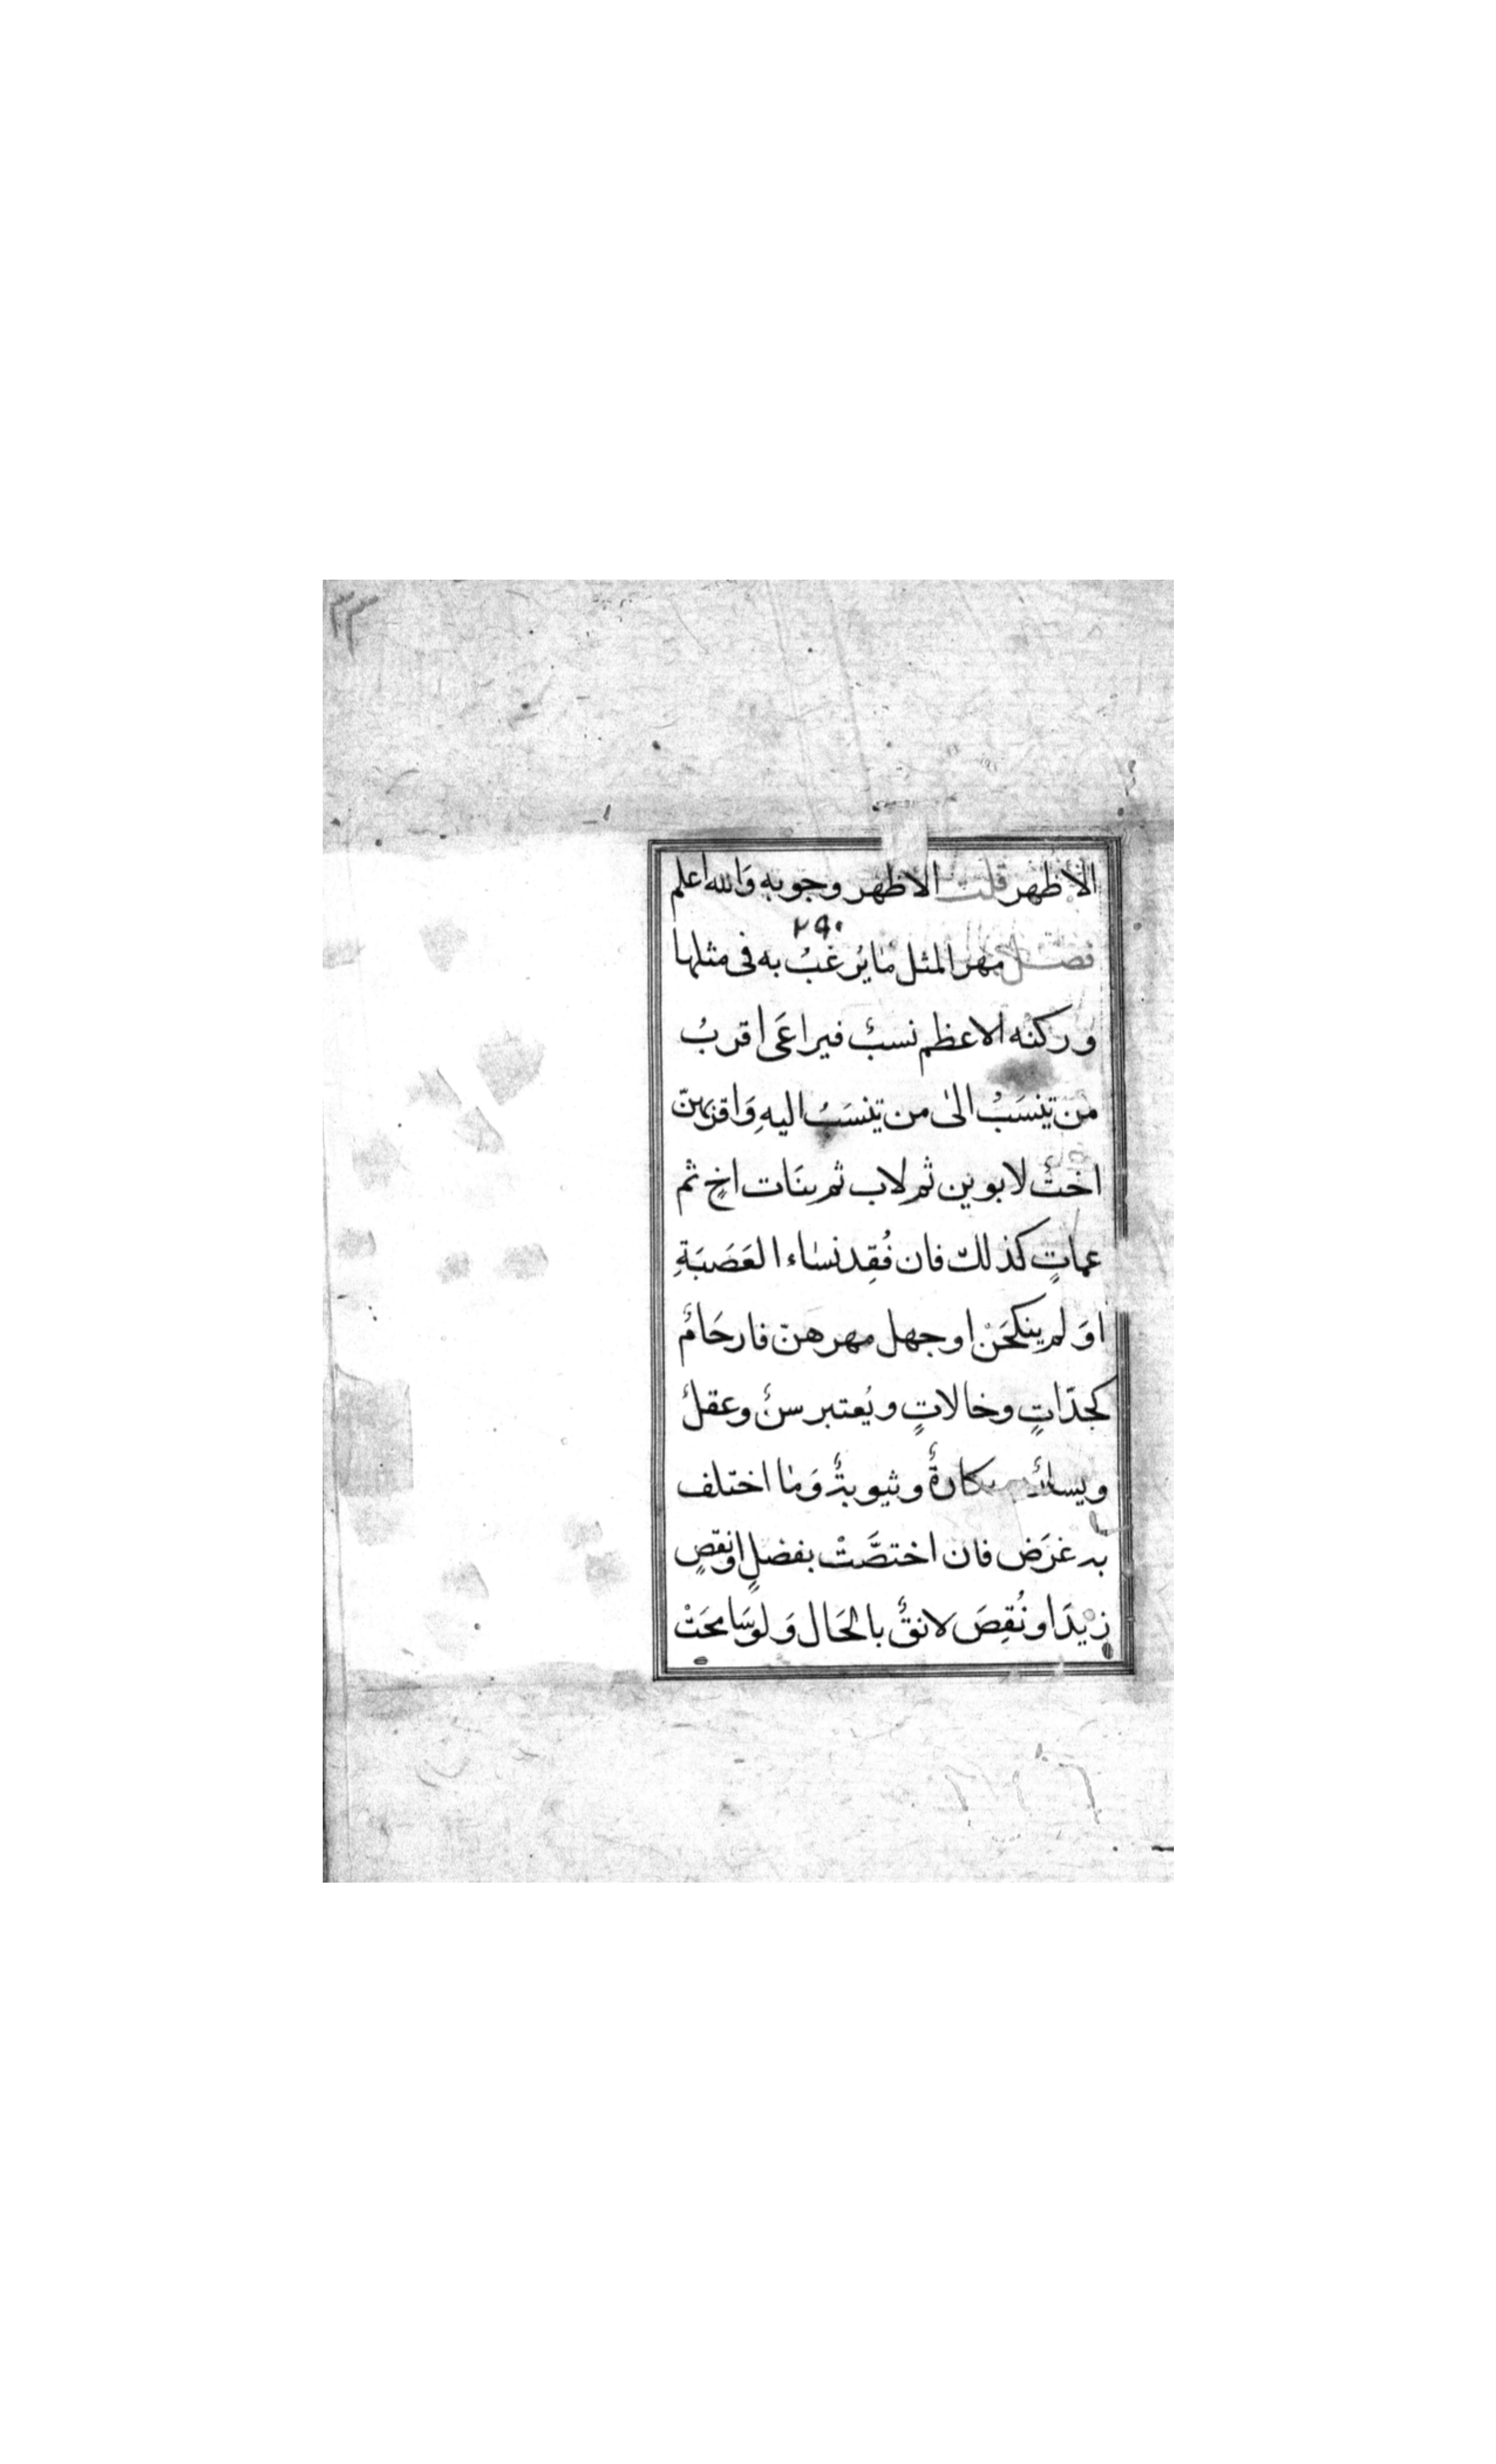 ٣٣
الأظهر قلت الاظهر وجوبه وَالله اعلم
٢٩٠
فصل مهر المثل مَا يُرغَبُ به فى مثلها
وركنه الاعظم نسبٌ فيراعَى اقربُ
من تنسَبُ الىٰ من تنسَبُ اليهِ وَاقربهنّ
اختٌ لابوين ثم لاب ثم بنَات اخٍ ثم
عماتٍ كذلك فان فُقِد نسَاء العَصَبَةِ
اوَ لم ينكحَنْ او جهل مهرهنّ فارحَامٌ
كجدّاتٍ وخالاتٍ ويُعتبر سنٌّ وعقلٌ
ويسارٌ بكارةٌ وثيوبةٌ وَمَا اختلف
به غرَض فان اختصَّتْ بفضلٍ او نقصٍ
زيدَ او نُقِصَ لائقٌ بالحَال وَلو سَامحَتْ